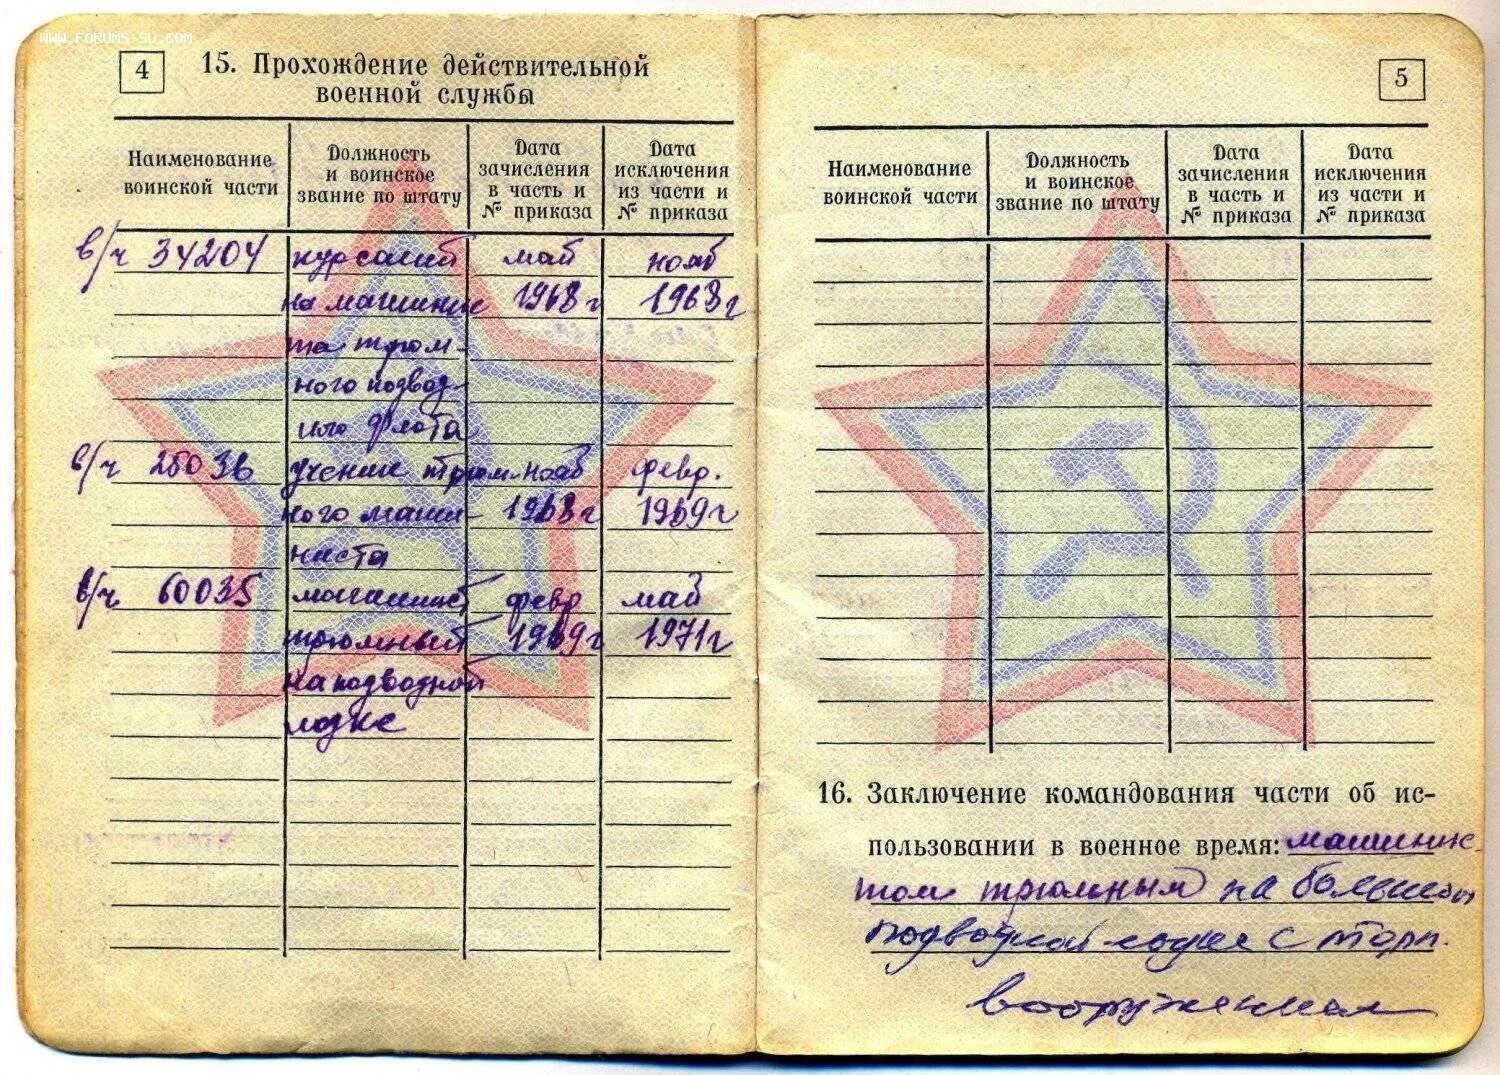 WWW.FORUMS-SU.COM
4
15. Прохождение действительной
военной службы
Наименование
воинской части
Должность
и воинское
звание по штату
Дата
зачисления
в часть и
№ приказа
Дата
исключения
из части и
№ приказа
в/ч 34204 курсант май нояб
на машинис 1968 г 1968 г
та трюм-
ного подвод-
ного флота
в/ч учение трюм- нояб февр.
ного маши- 1968 г 1969 г
ниста
в/ч 60035 машинист февр май
трюмный 1969 г 1971 г
на подводной
лодке
5
Наименование
воинской части
Должность
и воинское
звание по штату
Дата
зачисления
в часть и
№ приказа
Дата
исключения
из части и
№ приказа
16. Заключение командования части об ис-
пользовании в военное время: машинис-
том трюмным на большой
подводной лодке с торп.
вооружением